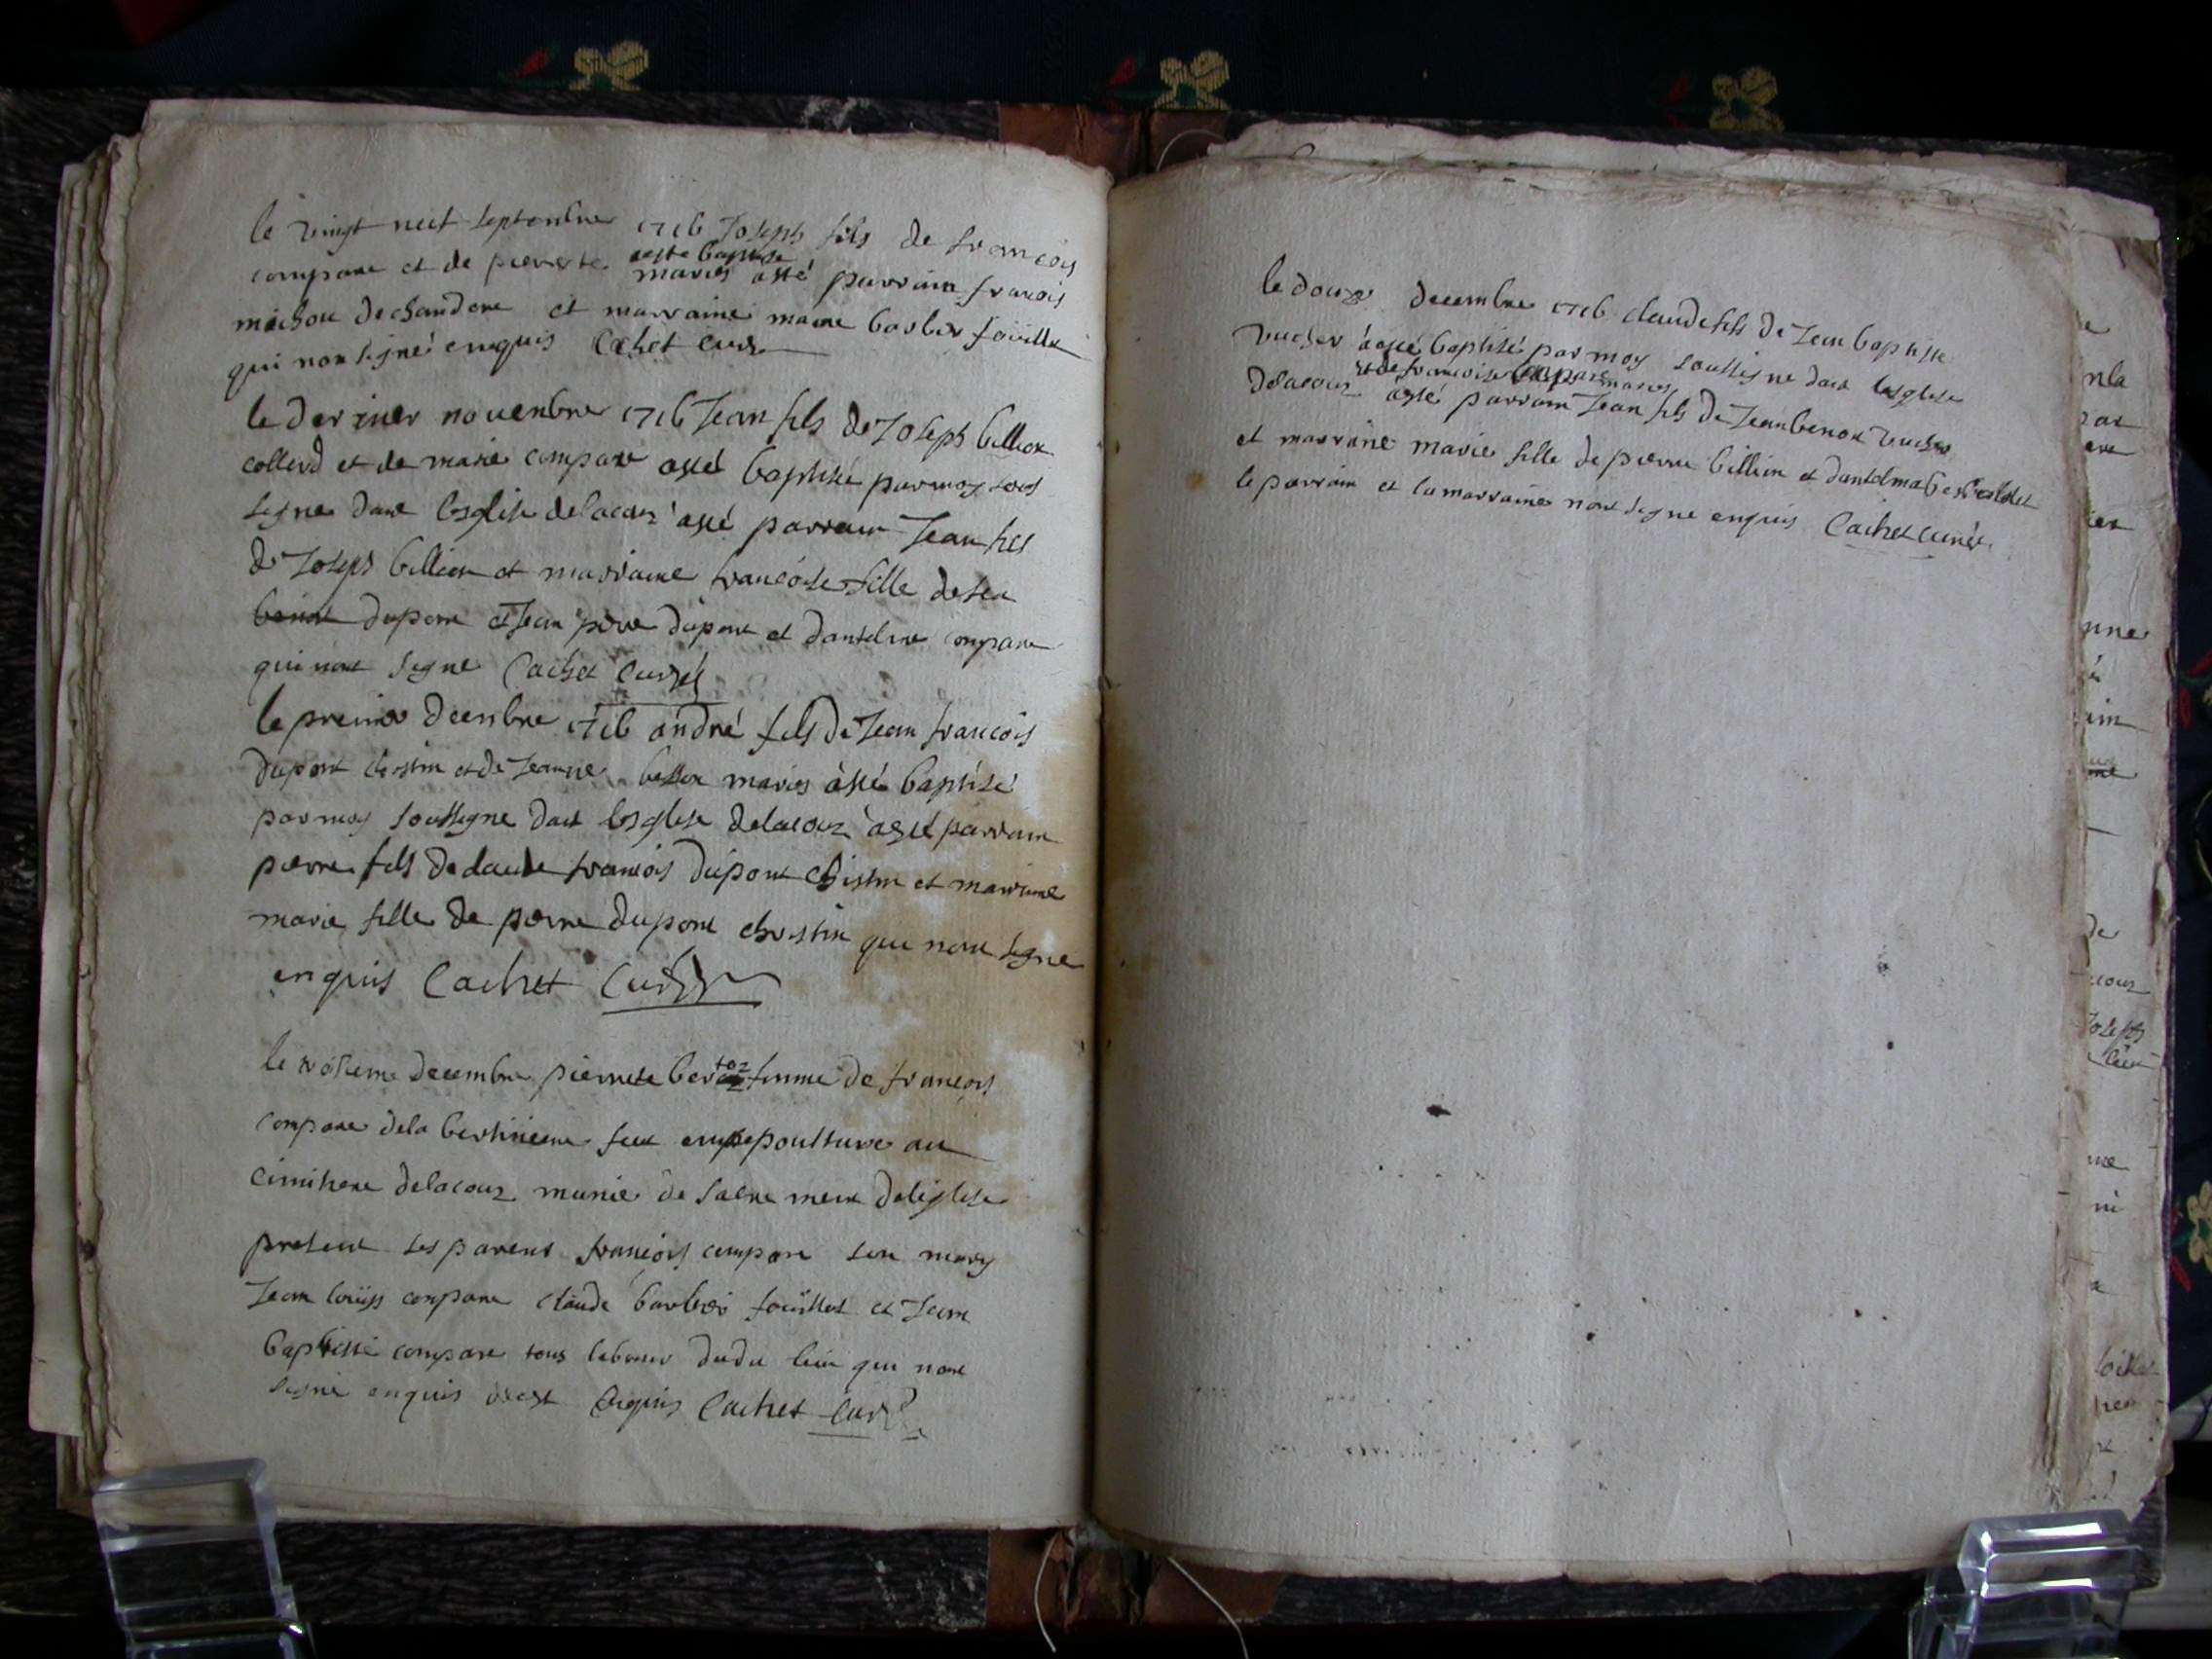 le vingt nect septembre 1716 Joseph fils de francois
compare et de pierrete aeste baptise maries asté parrain francois
michou dechandere et marraine marie barbier fouille
qui non signé enquis Cachet cure
le dernier novembre 1716 Jean fils de Joseph billion
collerd et de marie compare asté baptisé par moy sous
signe dans lesglise delacour asté parrain Jean fils
de Joseph billion et marraine francoise fille de feu
benoit dupont et Jean pierre dupont et dantelme compare
qui nont signe Cachet Curé
le premier decenbre 1716 andré fils de Jean francois
dupont christin et de Jeanne besson maries àsté baptisé
par moy soussigne dans lesglise delacour àesté parrain
pierre fils de claude francois dupont christin et marraine
marie fille de pierre dupont christin qui nont signe
enquis Cachet Curé
le troisieme decembre pierrete bertoz femme de francois
compare dela bertiniere feut ensepoulture au
cimitiere delacour munie de sacrement deleglise
present ses parens francois compare son mary
Jean louis compare claude barbier fouillet et Jean
baptiste compare tous laboureur dudit lieu qui nont
signé enquis Cachet Curé
le douze decembre 1716 claude fils de Jean baptiste
vucher aesté baptisé par moy soussigne dans lesglise
et de francoise compare maries
delacour asté parrain Jean fils de Jean benoit vucher
et marraine marie fille de pierre billion et dantelma
le parrain et la marraine nont signe enquis Cachet curé